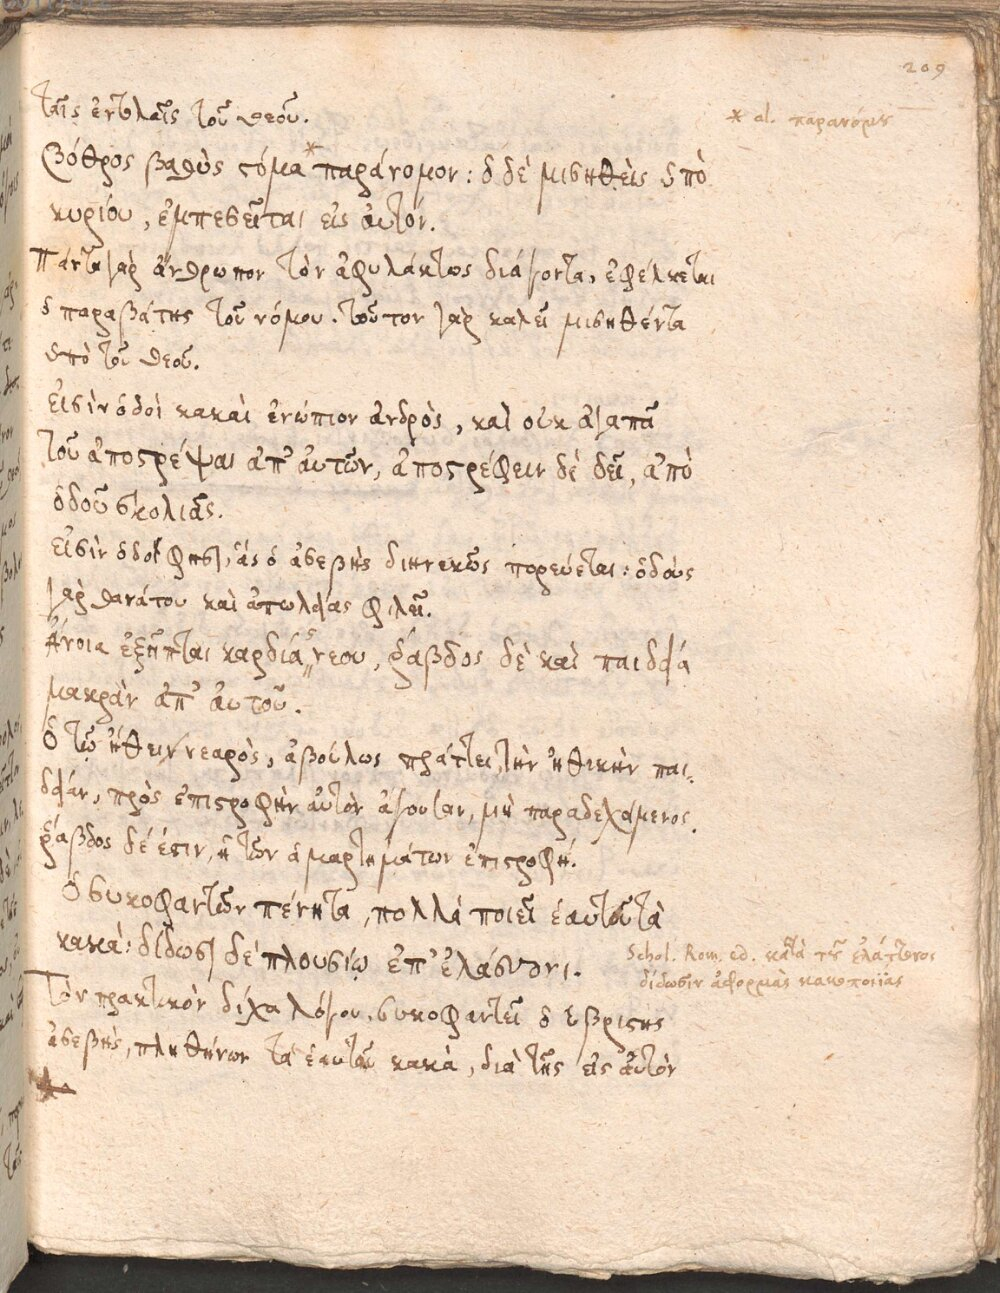 209
ταῖς ἐντολαῖς τοῦ θεοῦ.
* al. παρανόμων
βόθρος βαθὺς στόμα* παράνομον: ὁ δὲ μισηθεὶς ὑπὸ
κυρίου, ἐμπεσεῖται εἰς αὐτόν.
Πάντα γὰρ ἄνθρωπον τὸν ἀφυλάκτως διάγοντα, ἐφέλκεται
ὁ παραβάτης τοῦ νόμου. τοῦτον γὰρ καλεῖ μισηθέντα
ὑπὸ τοῦ θεοῦ.
εἰσὶν ὁδοὶ κακαὶ ἐνώπιον ἀνδρὸς, καὶ οὐκ ἀγαπᾶ
τοῦ ἀποστρέψαι ἀπ' αὐτῶν, ἀποστρέφειν δὲ δεῖ, ἀπὸ
ὁδοῦ σκολιᾶς.
εἰσὶν ὁδοὶ φησὶ, ἃς ὁ ἀσεβὴς διηνεκῶς πορεύεται: ὁδοὺς
γὰρ θανάτου καὶ ἀπωλείας φιλεῖ.
ἄνοια ἐξῆπται καρδίας νέου, ῥάβδος δὲ καὶ παιδεία
μακρὰν ἀπ' αὐτοῦ.
ὁ τῷ ἤθει νεαρὸς, ἀβούλως πράττει, τὴν ἠθικὴν παι-
δείαν, πρὸς ἐπιστροφὴν αὐτὸν ἄγουσαν, μὴ παραδεχάμενος.
ῥάβδος δέ ἐστιν, ἡ τῶν ἁμαρτημάτων ἐπιστροφή.
ὁ συκοφαντῶν πένητα, πολλὰ ποιεῖ ἑαυτοῦ τὰ
κακά: δίδωσι δὲ πλουσίῳ ἐπ' ἐλάσσονι.
Schol. Rom. ed. κατὰ τοῦ ἐλάττονος
δίδωσιν ἀφορμὰς κακοποιΐας
Τὸν πρακτικὸν δίχα λόγου, συκοφαντεῖ ὁ ὑβριστὴς
ἀσεβὴς, πληθύνων τὰ ἑαυτοῦ κακὰ, διὰ τῆς εἰς αὐτὸν